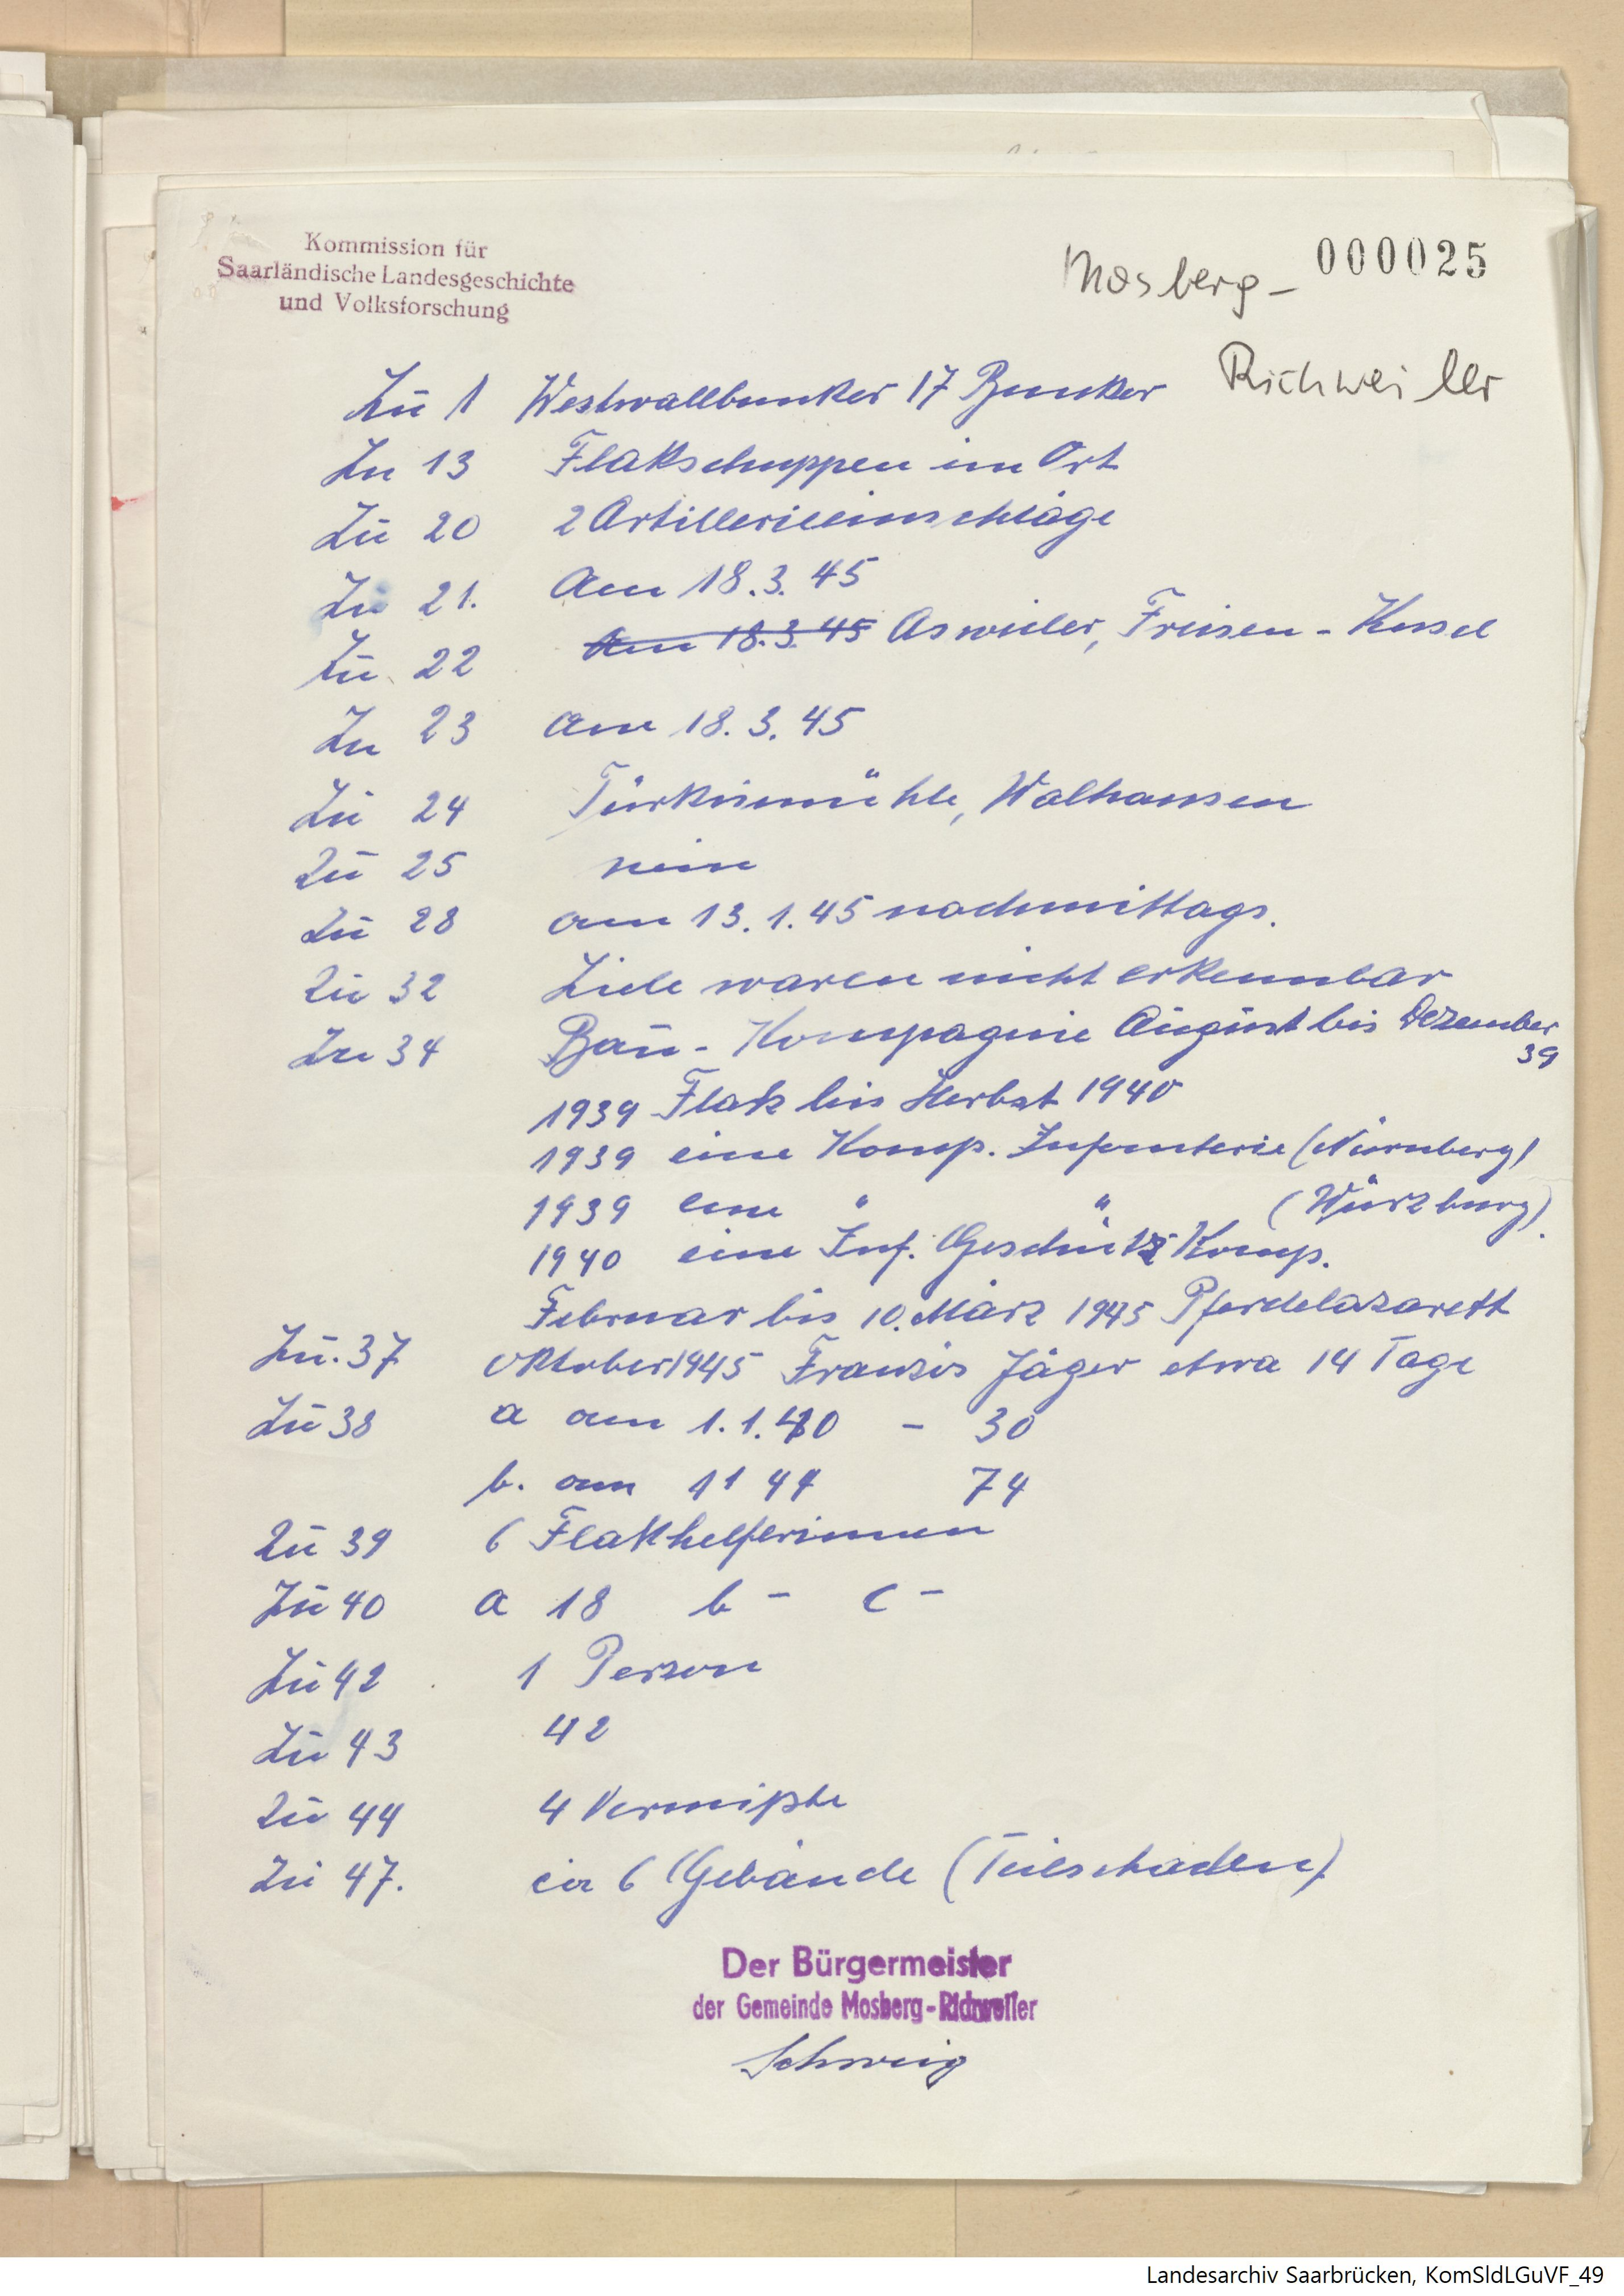 Kommission für
Saarländische Landesgeschichte
und Volksforschung
000025
Mosberg-
Richweiler
Zu 1 Westwallbunker 17 Bunker
Zu 13 Flakschuppen im Ort
Zu 20 2 Artillerieeinschläge
Zu 21. Am 18.3.45
Zu 22 Am 18.3.45 Asweiler, Freisen - Kusel
Zu 23 am 18.3.45
Zu 24 Türkismühle, Walhausen
Zu 25 nein
Zu 28 am 13.1.45 nachmittags.
Zu 32 Ziele waren nicht erkennbar
Zu 34 Bau- Kompagnie August bis Dezember
39
1939 Flak bis Herbst 1940
1939 eine Komp. Infanterie (Nürnberg)
1939 eine " " (Würzburg).
1940 eine Inf. Geschütz Komp.
Februar bis 10. März 1945 Pferdelazarett
Zu. 37 Oktober 1945 Französ Jäger etwa 14 Tage
Zu 38 a am 1.1.40 - 30
b. am 11 44 74
Zu 39 6 Flakhelferinnen
Zu 40 a 18 b - c -
Zu 42 1 Person
Zu 43 42
Zu 44 4 Vermißte
Zu 47. ca 6 Gebäude (Teilschaden)
Der Bürgermeister
der Gemeinde Mosberg-Richweiler
Schweig
Landesarchiv Saarbrücken, KomSldLGuVF_49